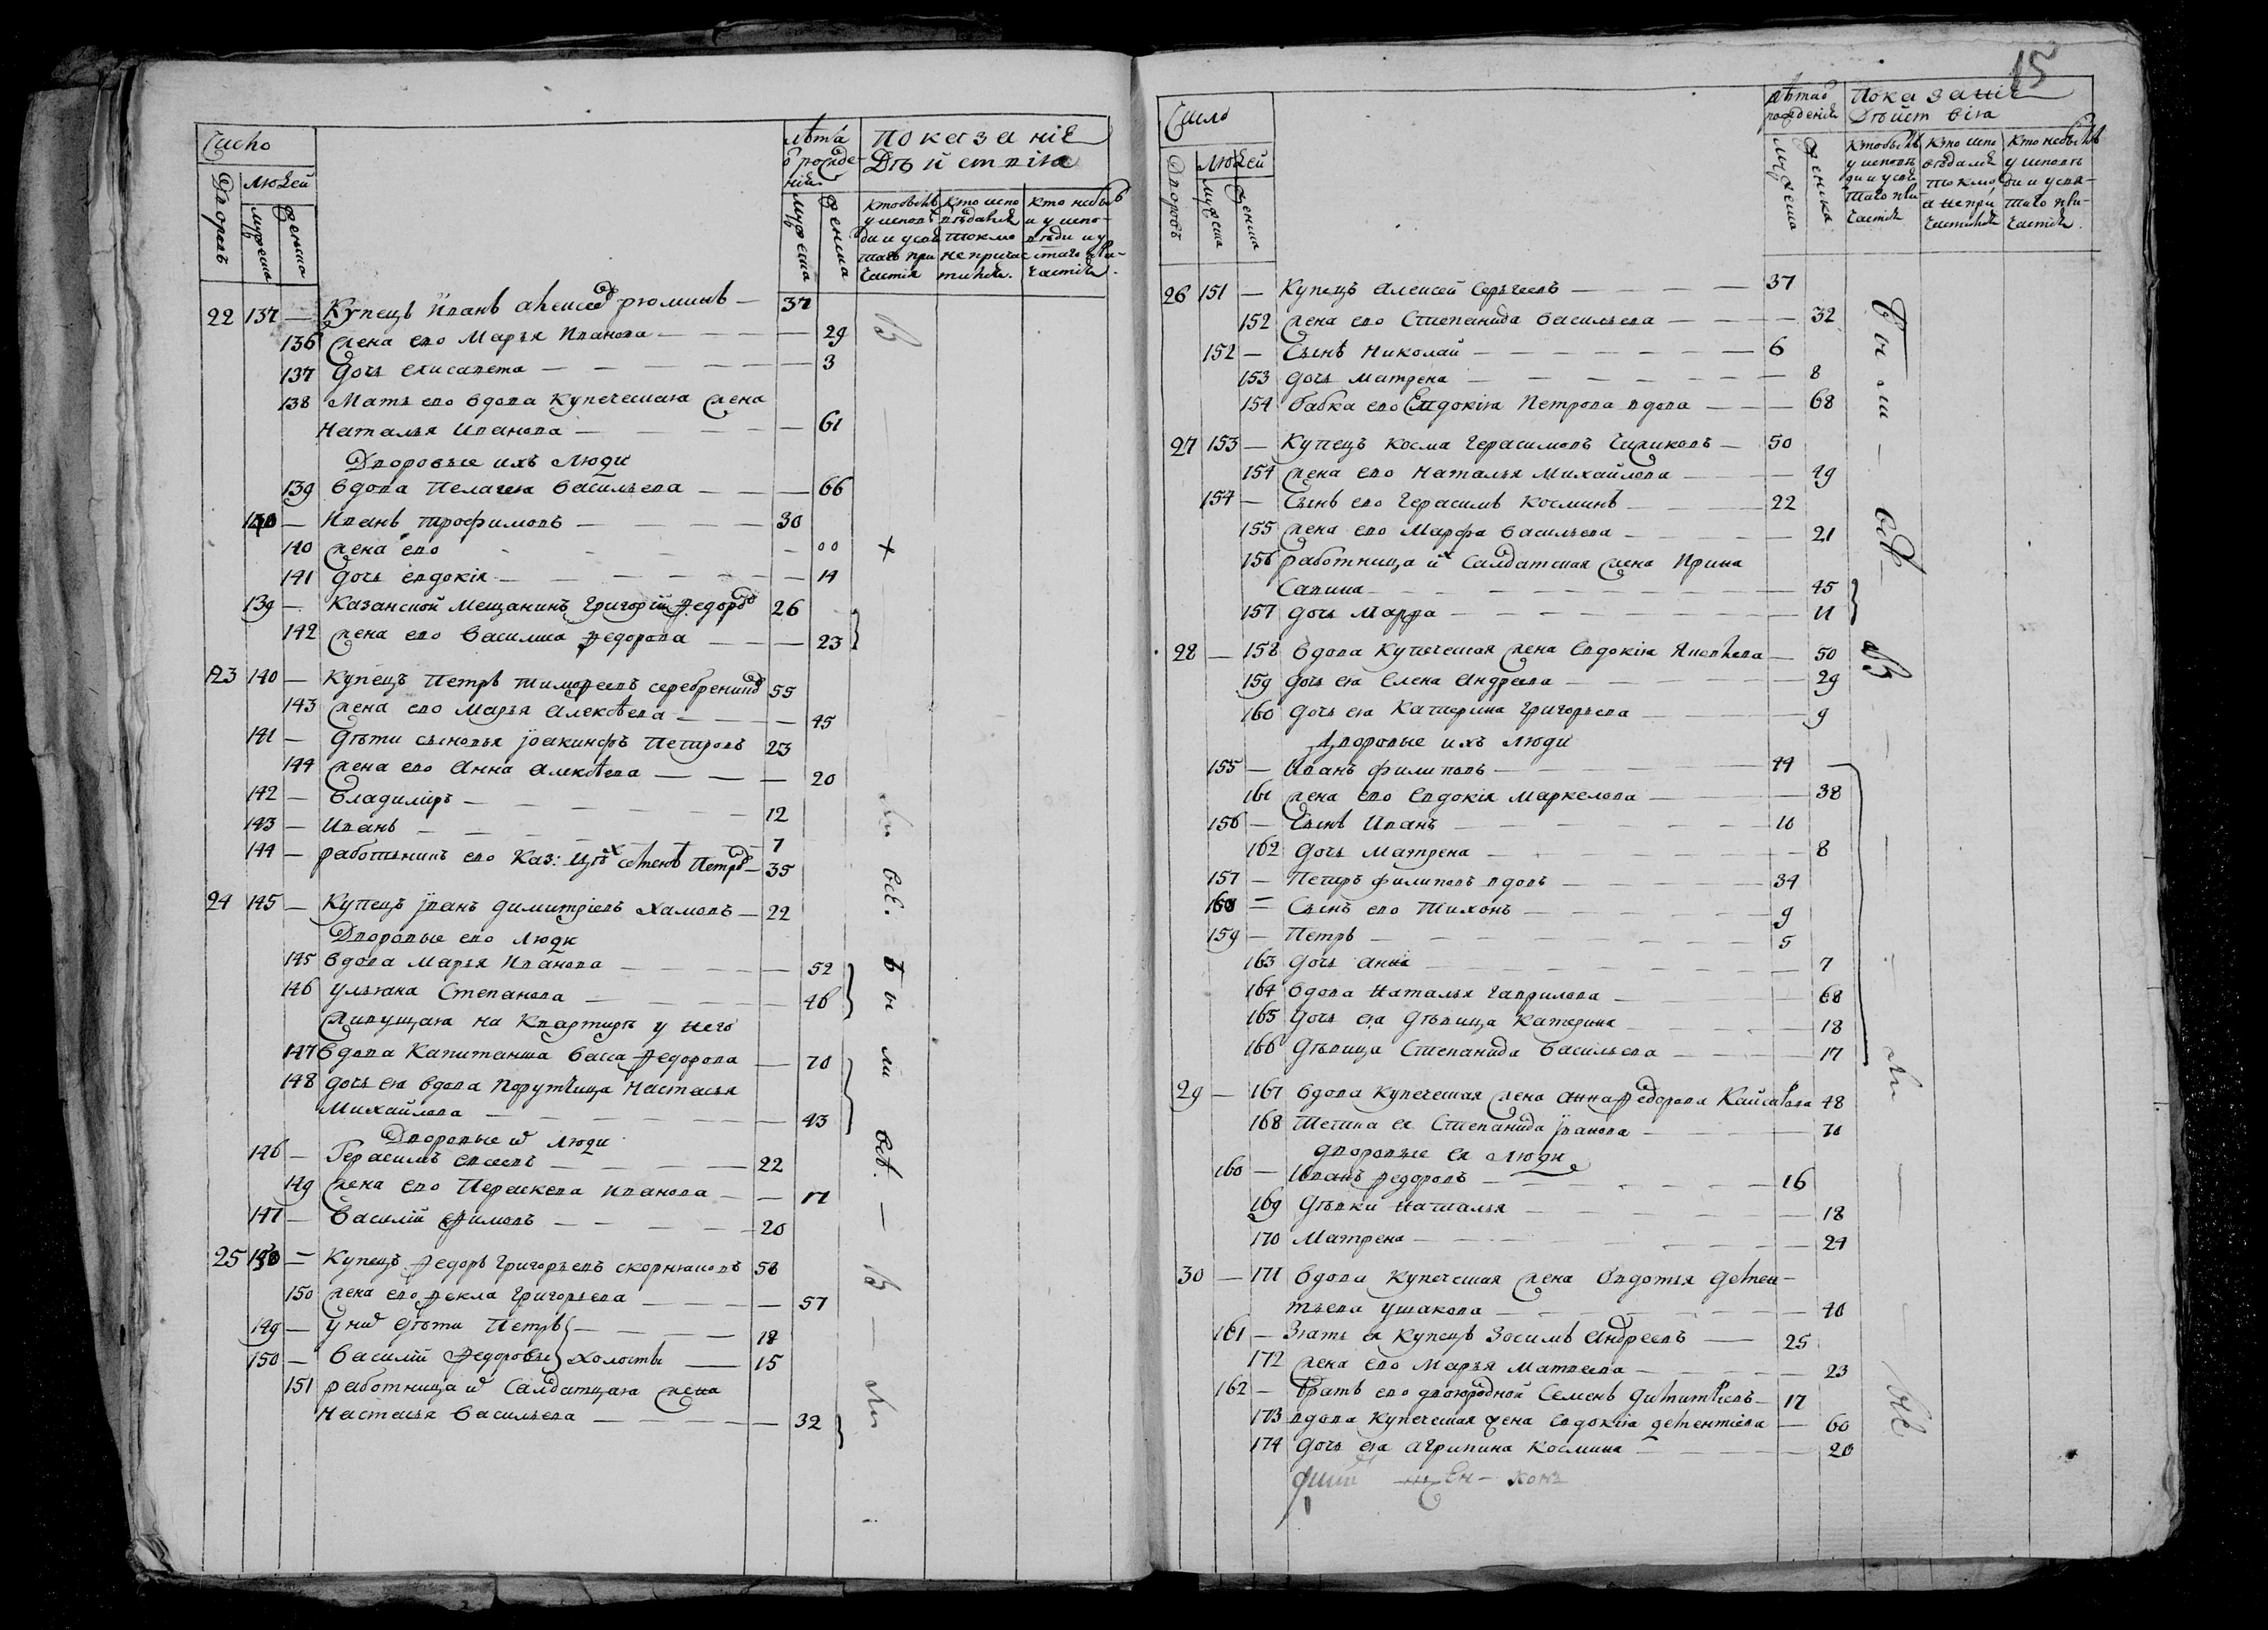 Число
Дворовъ
людей
мужеска
женска
лѣта
ѿ рожде-
нія
мужеска
женска
Показаніе
Дѣйствія
кто былъ
у исповѣ
ди и у свя
таго при
частія
кто испо
вѣдался
токмо
не причас
тился
кто небылъ
и у испо-
вѣди и у
стаго при-
частія
22 137 — Купецъ Иванъ алексеев рюминъ — 37
136 жена ево Марья Иванова — 29
137 дочь елисавета — 3
138 Мать ево вдова купеческая жена
Наталья Иванова — 61
Дворовые ихъ люди
139 вдова Пелагея Васильева — 66
— Иванъ трофимовъ — 30
140 жена ево — 00
141 дочь евдокія — 14
139 — Казанской мещанинъ григорій федоров 26
142 жена ево Василиса федорова — 23
23 140 — Купецъ Петръ тимофеевъ серебрени 55
143 жена ево Марья алексѣева — 45
141 — дѣти сыновья іоакинфъ Петровъ 23
144 жена ево анна алексѣева — 20
142 — Владиміръ — 12
143 — Иванъ — 7
144 — работникъ ево Каз: семенъ Петров — 35
24 145 — Купецъ іванъ димитріевъ хамовъ — 22
Дворовые ево люди
145 вдова Марья Иванова — 52
146 ульяна Степанова — 46
живущая на Квартирѣ у него
147 вдова Капитанша Васса федорова — 70
148 дочь ея вдова Порутчица Настасья
Михайлова — 43
Дворовые ихъ люди
146 — Герасимъ евсеевъ — 22
149 жена ево Пераскева Иванова — 17
147 — Василій ефимовъ — 20
25 — Купецъ федоръ григорьевъ скорняковъ 58
150 жена ево фекла григорьева — 57
149 — у них дѣти Петръ — 18
150 — Василій федоровы холосты — 15
151 работница их салдатская жена
Настасья Васильева — 32
Были всѣ
15
Число
Дворовъ
людей
мужеска
женска
лѣта ѿ
рожденія
мужеска
женска
Показаніе
Дѣйствія
кто былъ
у исповѣ
ди и у свя
таго при
частія
кто испо
вѣдался
токмо
а непри
частился
кто небылъ
у исповѣ
ди и у свя-
таго при-
частія
26 151 — Купецъ алексей Сергеевъ — 37
152 жена ево Степанида Васильева — 32
152 — Сынъ Николай — 6
153 дочь матрена — 8
154 бабка ево Евдокія Петрова вдова — 68
27 153 — Купецъ Косма герасимовъ Чириковъ — 50
154 жена ево Наталья михайлова — 49
154 — Сынъ ево герасимъ косминъ — 22
155 жена ево марфа васильева — 21
156 работница их салдатская жена Ирина
Савина — 45
157 дочь Марфа — 11
28 — 158 вдова Купеческая жена Евдокія Яковлева — 50
159 дочь ея елена андреева — 29
160 дочь ея Катерина григорьева — 9
Дворовые ихъ люди
155 — Иванъ филиповъ — 44
161 жена ево Евдокія маркелова — 38
156 — Сынъ Иванъ — 10
162 дочь матрена — 8
157 — Петръ филиповъ вдовъ — 34
158 — Сынъ ево Тихонъ — 9
159 — Петръ — 5
163 дочь анна — 7
164 вдова Наталья гаврилова — 68
165 дочь ея дѣвица катерина — 18
166 дѣвица Степанида Васильева — 17
29 — 167 вдова купеческая жена анна федорова 48
168 тетка ея Степанида іванова — 70
дворовые ея люди
160 — Иванъ федоровъ — 16
169 дѣвки Наталья — 18
170 Матрена — 24
30 — 171 вдова купеческая жена авдотья демен-
тьева ушакова — 40
161 — Зять ея купецъ Зосимъ андреевъ — 25
172 жена ево марья матвеева — 23
162 — братъ ево двоюродной Семенъ димитріевъ — 17
173 вдова купеческая жена евдокія дементіева — 60
174 дочь ея агрипина космина — 20
Были всѣ